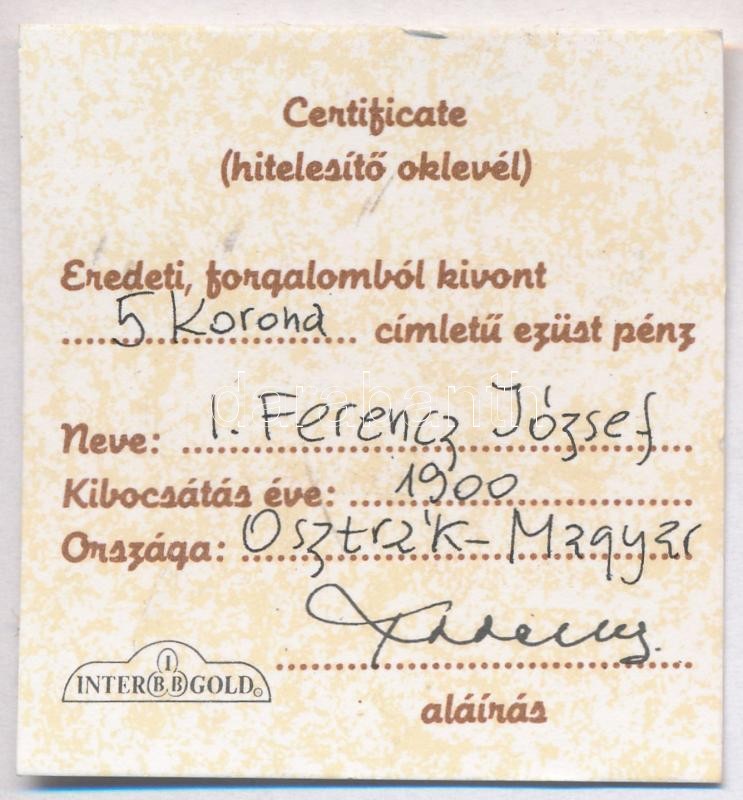 Certificate
(hitelesítő oklevél)
Eredeti, forgalomból kivont
5 Korona címletű ezüst pénz
darabanth
Neve: I. Ferencz József
Kibocsátás éve: 1900
Országa: Osztrák-Magyar
I
INTER B.B GOLD
aláírás